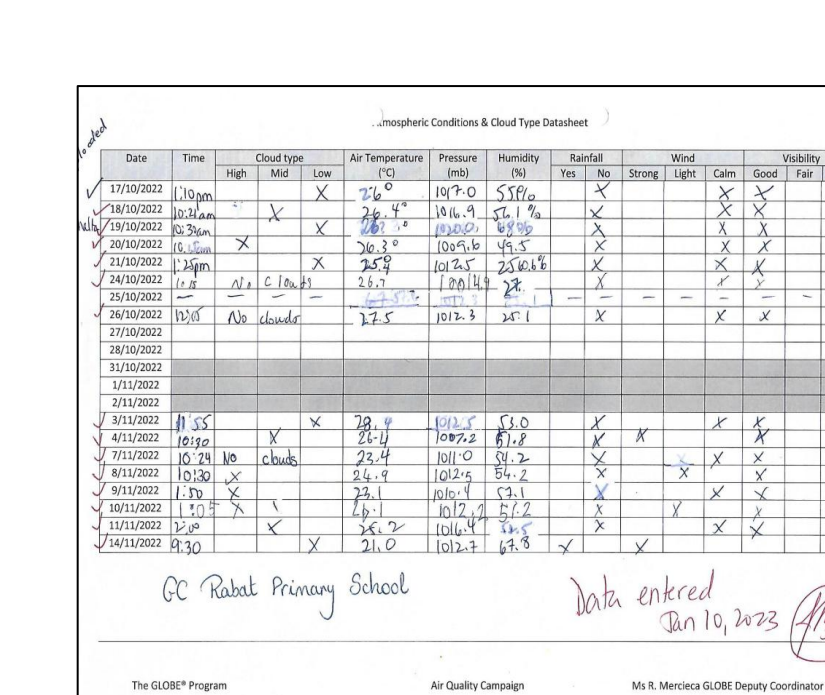 mospheric Conditions & Cloud Type Datasheet
Date Time Cloud type Air Temperature Pressure Humidity Rainfall Wind Visibility
High Mid Low (°C) (mb) (%) Yes No Strong Light Calm Good Fair
17/10/2022 1:10pm X 26° 1017.0 55% X X X
18/10/2022 10:21am X 26.4° 1016.9 56.1% X X X
19/10/2022 X X X X
20/10/2022 X 26.3° 1009.6 49.5 X X X
21/10/2022 1:25pm X 1012.5 X X X
24/10/2022 10:15 No clouds 26.7 27. X X X
25/10/2022 — — — — — — — — —
26/10/2022 12:05 No clouds 27.5 1012.3 25.1 X X X
27/10/2022
28/10/2022
31/10/2022
1/11/2022
2/11/2022
3/11/2022 11:55 X 28.9 1012.5 53.0 X X X
4/11/2022 10:30 X 26.4 1007.2 51.8 X X X
7/11/2022 10:24 No clouds 23.4 1011.0 54.2 X X X
8/11/2022 10:30 X 24.9 1012.5 54.2 X X X
9/11/2022 1:50 X 23.1 1010.4 57.1 X X X
10/11/2022 1:05 X \ 26.1 1012.2 51.2 X X X
11/11/2022 2:00 X 25.2 1016.4 X X X
14/11/2022 9:30 X 21.0 1012.7 67.8 X X
GC Rabat Primary School
Data entered
Jan 10, 2023
The GLOBE® Program Air Quality Campaign Ms R. Mercieca GLOBE Deputy Coordinator